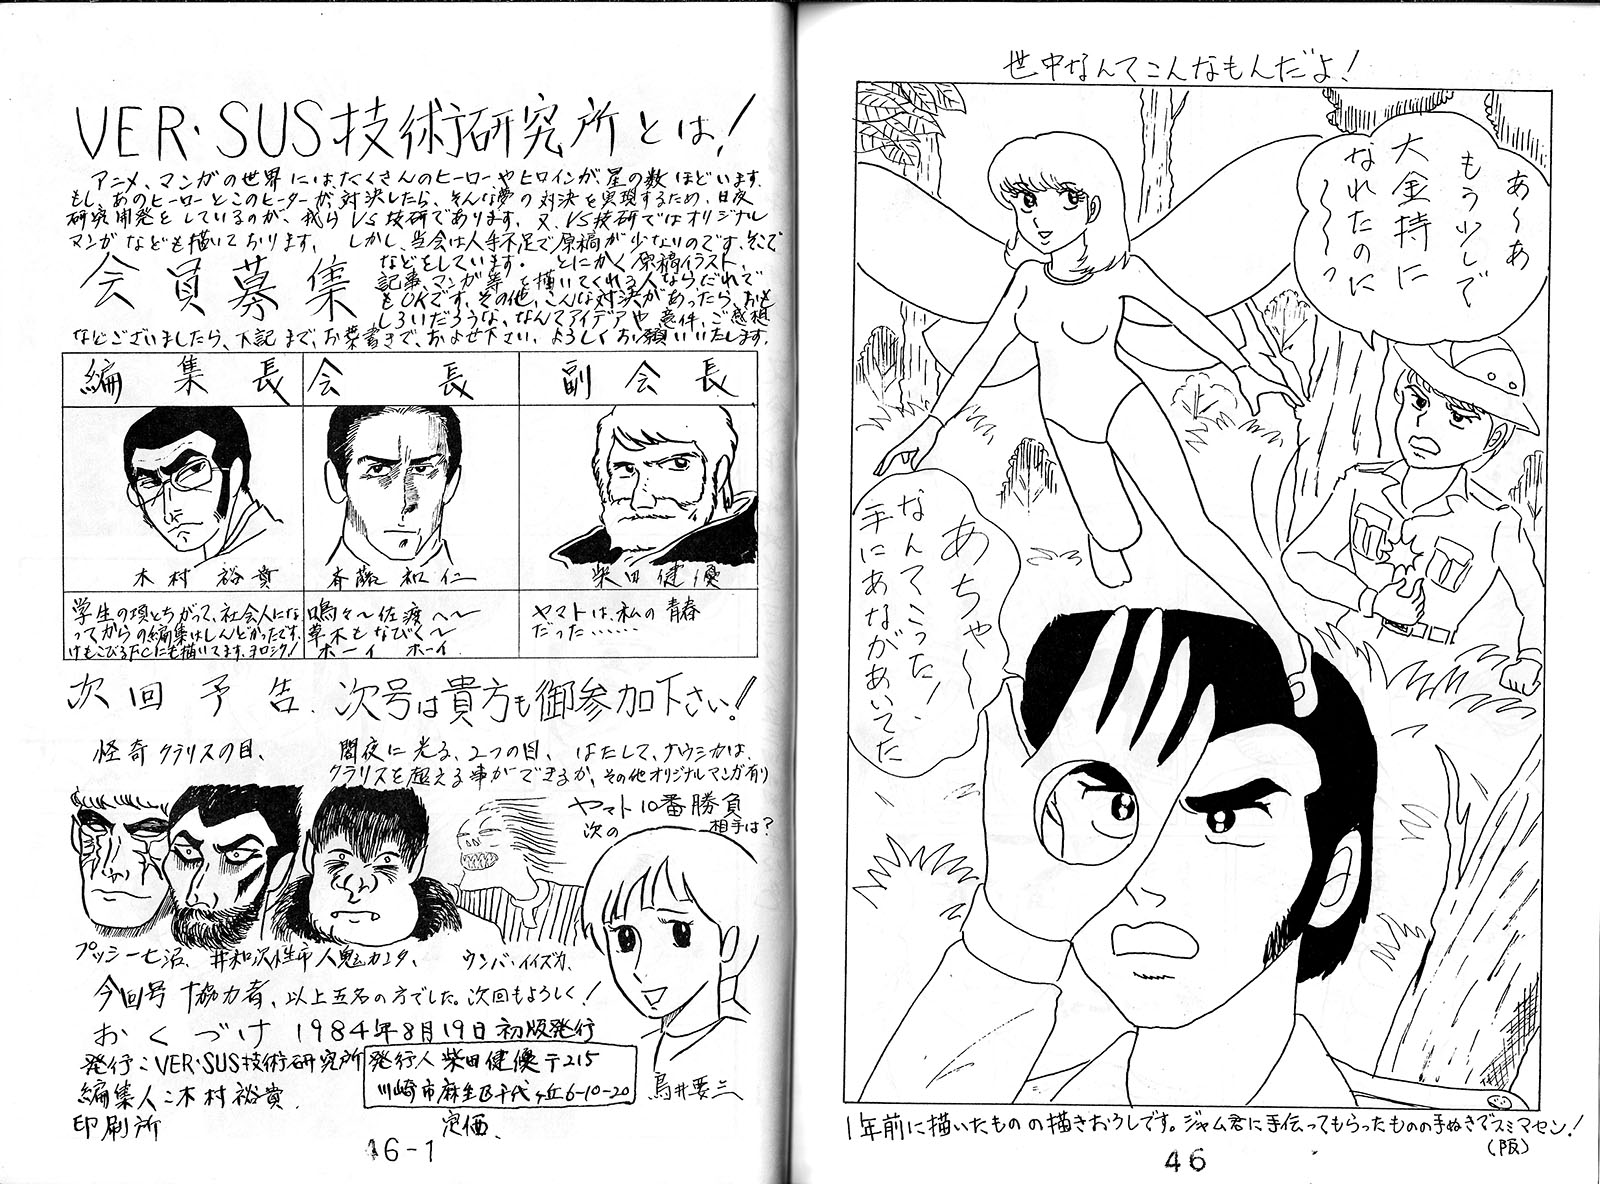 VER・SUS技術研究所とは!
アニメ、マンガの世界には、たくさんのヒーローやヒロインが、星の数ほどいます。
もし、あのヒーローとこのヒーターが、対決したら、そんな夢の対決を実現するため、日夜
研究開発をしているのが、我らVS技研であります。又、VS技研ではオリジナル
マンガなども描いております。 しかし、当会は人手不足で原稿が少ないのです、そこで
会員募集
などをしています。 とにかく原稿イラスト、
記事、マンガ等を描いてくれる人なら、だれで
もOKです。その他、こんな対決があったら、おも
しろいだろうな、なんてアイデアや意件、ご感想
などございましたら、下記まで、お葉書きで、およせ下さい、よろしくお願いいたします。
編集長
会長
副会長
木村裕貴
斉藤和仁
柴田健優
学生の頃とちがって、社会人にな
ってからの編集はしんどかったです。
けもこびるFCにも描いてます、ヨロシク!
鳴々〜佐渡へ〜
草木もなびく〜
ホーイ ホーイ
ヤマトは、私の青春
だった……
次回予告、次号は貴方も御参加下さい!
怪奇クラリスの目、
闇夜に光る、2つの目、はたして、ナウシカは、
クラリスを超える事ができるか、その他オリジナルマンガ有り
ヤマト10番勝負
次の相手は?
プッシー七沼、
ウンバ・イイズカ、
今回号協力者、以上五名の方でした。次回もよろしく!
おくづけ 1984年8月19日初版発行
発行:VER・SUS技術研究所
発行人 柴田健優〒215
川崎市麻生区千代ヶ丘6-10-20
編集人:木村裕貴
印刷所
定価、
鳥井要三
46-1
世中なんてこんなもんだよ!
あ〜あ
もう少しで
大金持に
なれたのに
〜〜っ
あちゃ〜
なんてこった!
手にあながあいてた
1年前に描いたものの描きおろしです。ジャム君に手伝ってもらったものの手ぬきでスミマセン!
(阪)
46